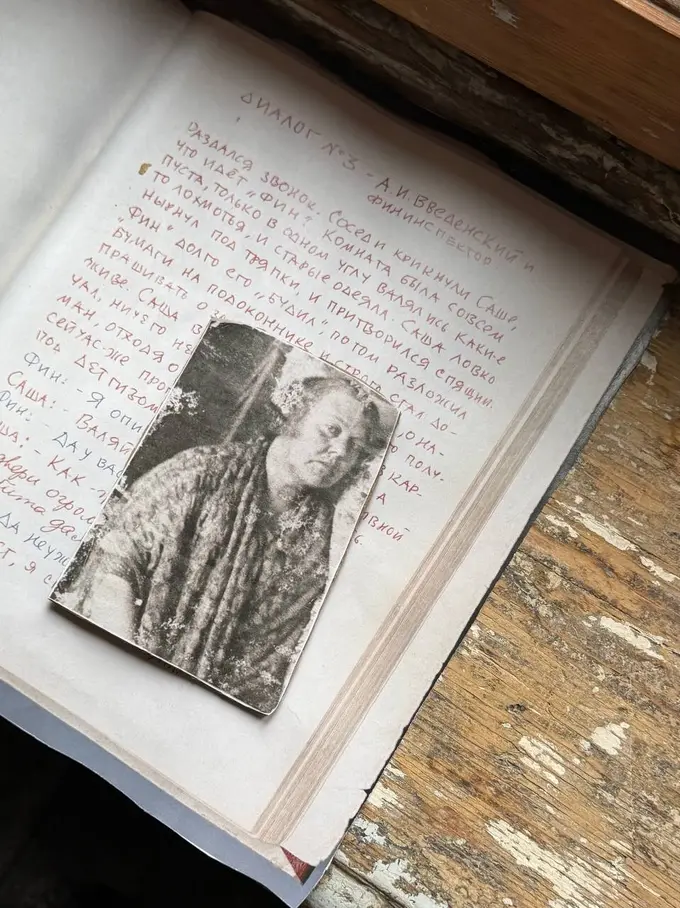 ДИАЛОГ №3 - А.И. ВВЕДЕНСКИЙ И
ФИНИНСПЕКТОР
РАЗДАЛСЯ ЗВОНОК. СОСЕДИ КРИКНУЛИ САШЕ,
ЧТО ИДЁТ „ФИН“. КОМНАТА БЫЛА СОВСЕМ
ПУСТА, ТОЛЬКО В ОДНОМ УГЛУ ВАЛЯЛИСЬ КАКИЕ-
ТО ЛОХМОТЬЯ, И СТАРЫЕ ОДЕЯЛА. САША ЛОВКО
НЫРНУЛ ПОД ТРЯПКИ, И ПРИТВОРИЛСЯ СПЯЩИМ.
„ФИН“ ДОЛГО ЕГО „БУДИЛ“, ПОТОМ РАЗЛОЖИЛ
БУМАГИ НА ПОДОКОННИКЕ И СТРОГО СТАЛ ДО-
ПРАШИВАТЬ О
ЖИВЕ. САША
ЧАЛ, НИЧЕГО НЕ ПОЛУ-
МАН, ОТХОДЯ О В КАР-
СЕЙЧАС-ЖЕ ПРО А
ПОД ДЕТГИЗОМ
ФИН: - Я ОПИ
САША: - ВАЛЯЙ
ФИН: - ДА У ВАС
- КАК
ДА НЕУЖ